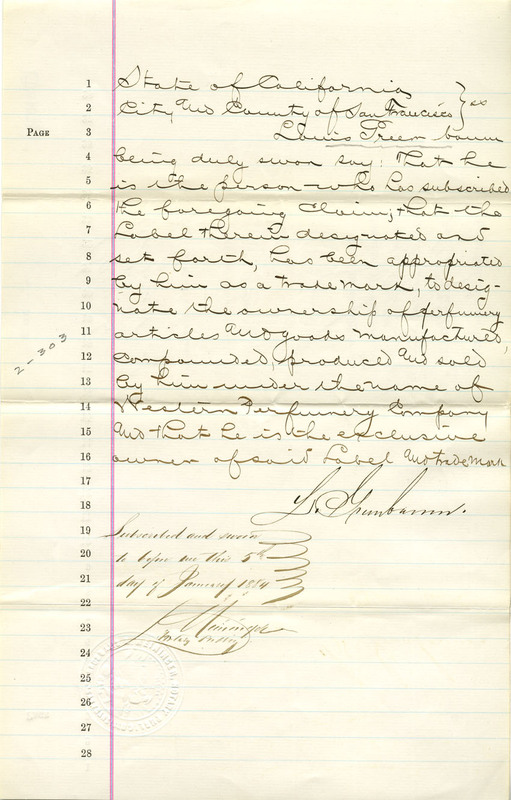 1 State of California
2 City and County of San Francisco } ss
PAGE 3 Louis Greenbaum
4 being duly sworn say: That he
5 is the person who has subscribed
6 the foregoing Claim; that the
7 Label therein designated and
8 set forth, has been appropriated
9 by him as a trade mark, to desig-
10 nate the ownership of perfumery
11 articles and goods manufactured,
12 compounded, produced and sold
13 by him under the name of
14 Western Perfumery Company
15 and that he is the exclusive
16 owner of said Label and trade Mark
2-303
17
18 L. Greenbaum.
19 Subscribed and sworn
20 to before me this 5th
21 day of January 1884
22
23
Notary Public
24
25
26
27
28